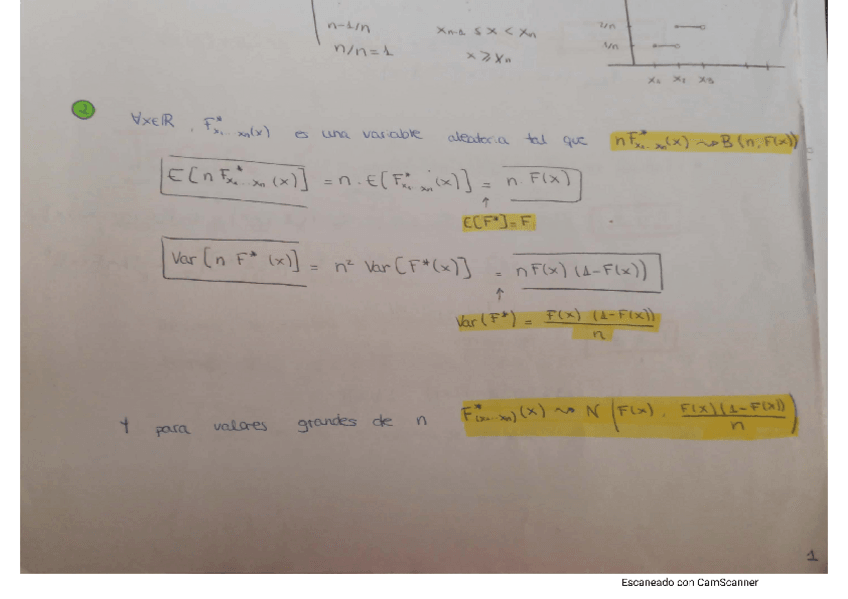 n-1/n xn-1 ≤ x < xn
n/n=1 x ≥ xn
2/n
1/n
x1 x2 x3
2
∀x∈ℝ, F*x1...xn(x) es una variable aleatoria tal que nF*x1...xn(x) ⇝ B(n, F(x))
E[n F*x1...xn(x)] = n · E[F*x1...xn(x)] = n F(x)
↑
E[F*]=F
Var[n F*(x)] = n² Var[F*(x)] = nF(x) (1-F(x))
↑
Var(F*) = F(x) (1-F(x)) / n
Y para valores grandes de n F*(x1...xn)(x) ⇝ N(F(x), F(x)(1-F(x)) / n)
1
Escaneado con CamScanner